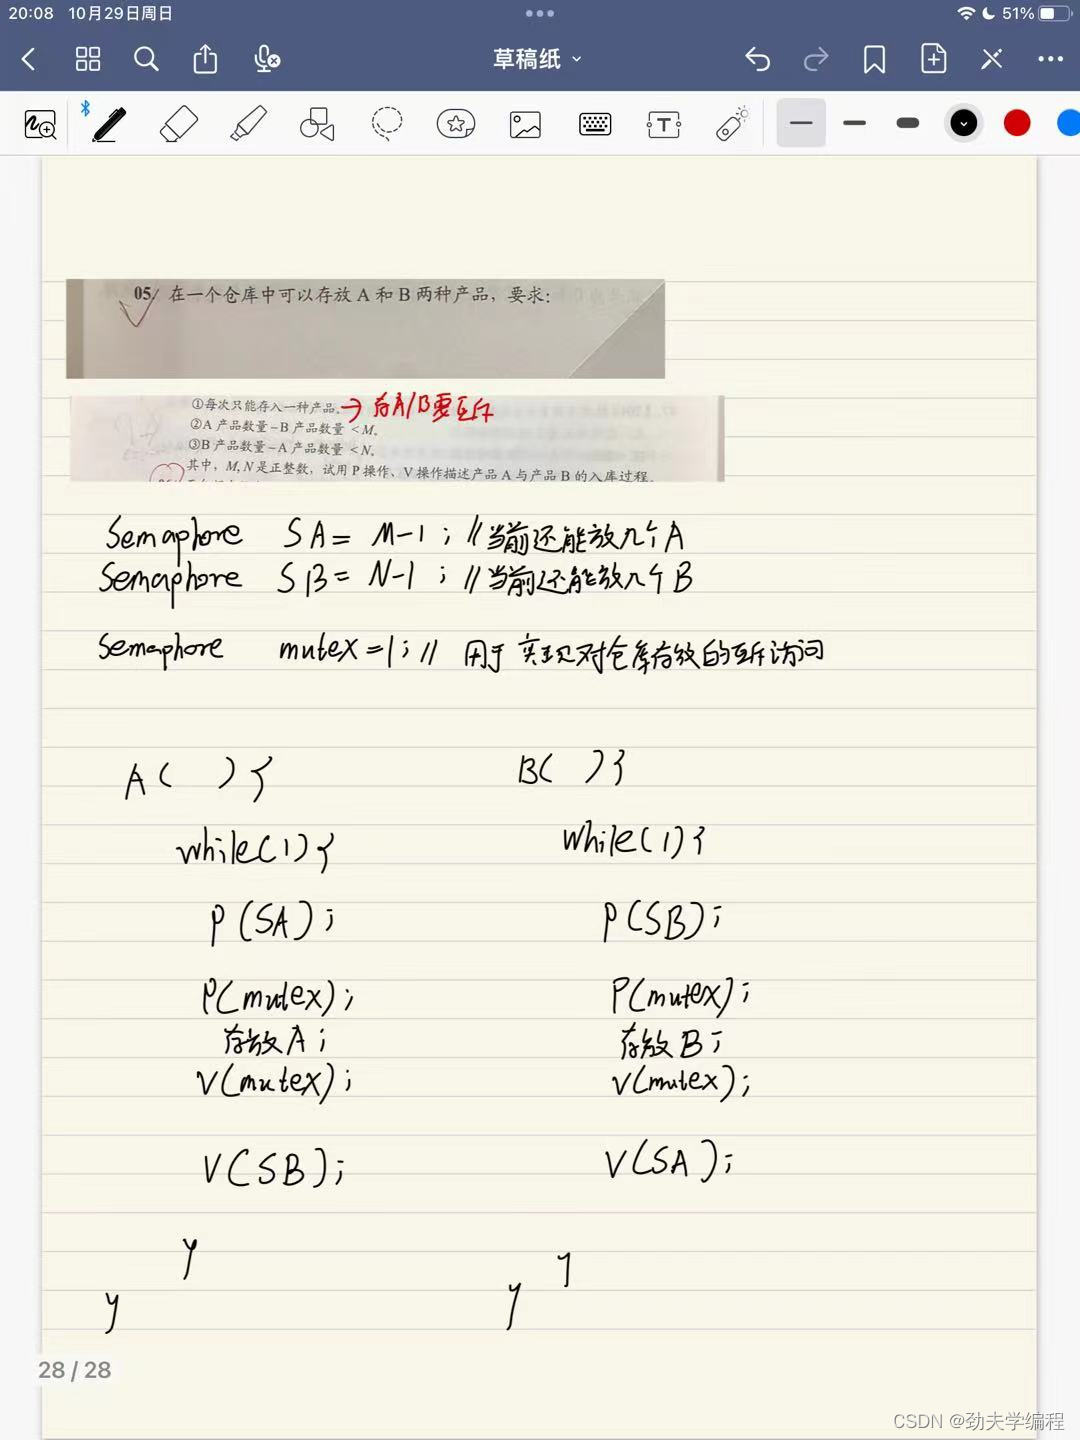 20:08 10月29日周日 51%
草稿纸
05 在一个仓库中可以存放 A 和 B 两种产品，要求：
①每次只能存入一种产品。→存A/B要互斥
②A 产品数量-B 产品数量<M。
③B 产品数量-A 产品数量<N。
其中，M, N 是正整数，试用 P 操作、V 操作描述产品 A 与产品 B 的入库过程。
Semaphore SA = M-1；//当前还能放几个A
Semaphore SB = N-1；//当前还能放几个B
Semaphore mutex=1；// 用于实现对仓库存放的互斥访问
A( ){
while(1){
P(SA);
P(mutex);
存放A;
V(mutex);
V(SB);
}
}
B( ){
while(1){
P(SB);
P(mutex);
存放B;
V(mutex);
V(SA);
}
}
28 / 28
CSDN @劲夫学编程